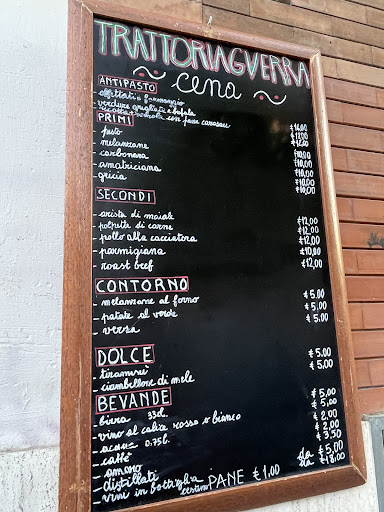 TRATTORIA GUERRA
cena
ANTIPASTO
- affettati e formaggio
- verdure grigliate e bufala
- ricotta e nduia con pane carasau € 16,00
PRIMI € 12,00
- pesto € 12,00
- melanzane € 10,00
- carbonara € 10,00
- amatriciana € 10,00
- gricia € 10,00
SECONDI
- arista di maiale € 12,00
- polpette di carne € 12,00
- pollo alla cacciatora € 12,00
- parmigiana € 10,00
- roast beef € 12,00
CONTORNO
- melanzane al forno € 5,00
- patate al verde € 5,00
- verza € 5,00
DOLCE
- tiramisù € 5,00
- ciambellone di mele € 5,00
BEVANDE
- birra 33cl € 5,00
- vino al calice rosso o bianco € 5,00
- acqua 0.75l € 2,00
- caffè € 2,00
- amaro € 3,50
- distillati da € 5,00
- vini in bottiglia da € 18,00
cestino PANE € 1,00